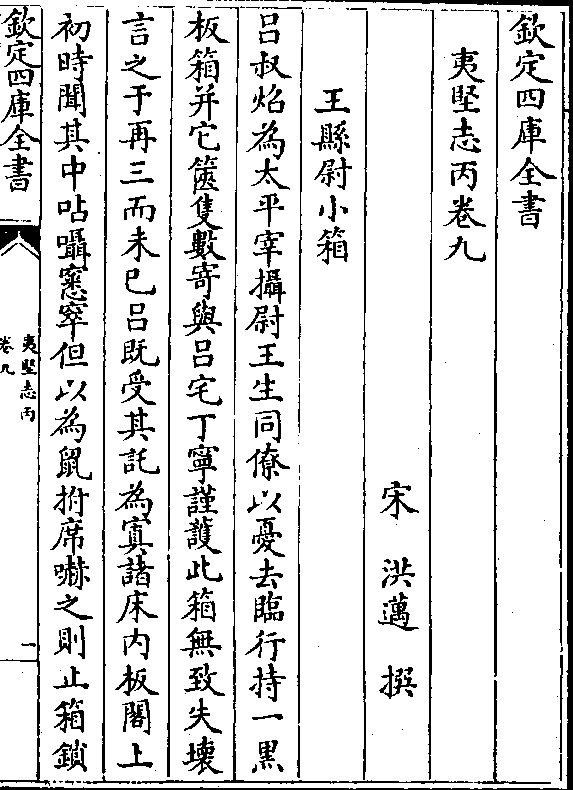 欽定四庫全書
夷堅志丙卷九
宋 洪邁 撰
王縣尉小箱
呂叔炤為太平宰攝尉王生同僚以憂去臨行持一黑
板箱并它篋隻數寄與呂宅丁寧謹護此箱無致失壞
言之于再三而未已呂既受其託為寘諸床内板閣上
初時聞其中呫囁窸窣但以為鼠拊席嚇之則止箱鎖
欽定四庫全書
夷堅志丙
卷九
一